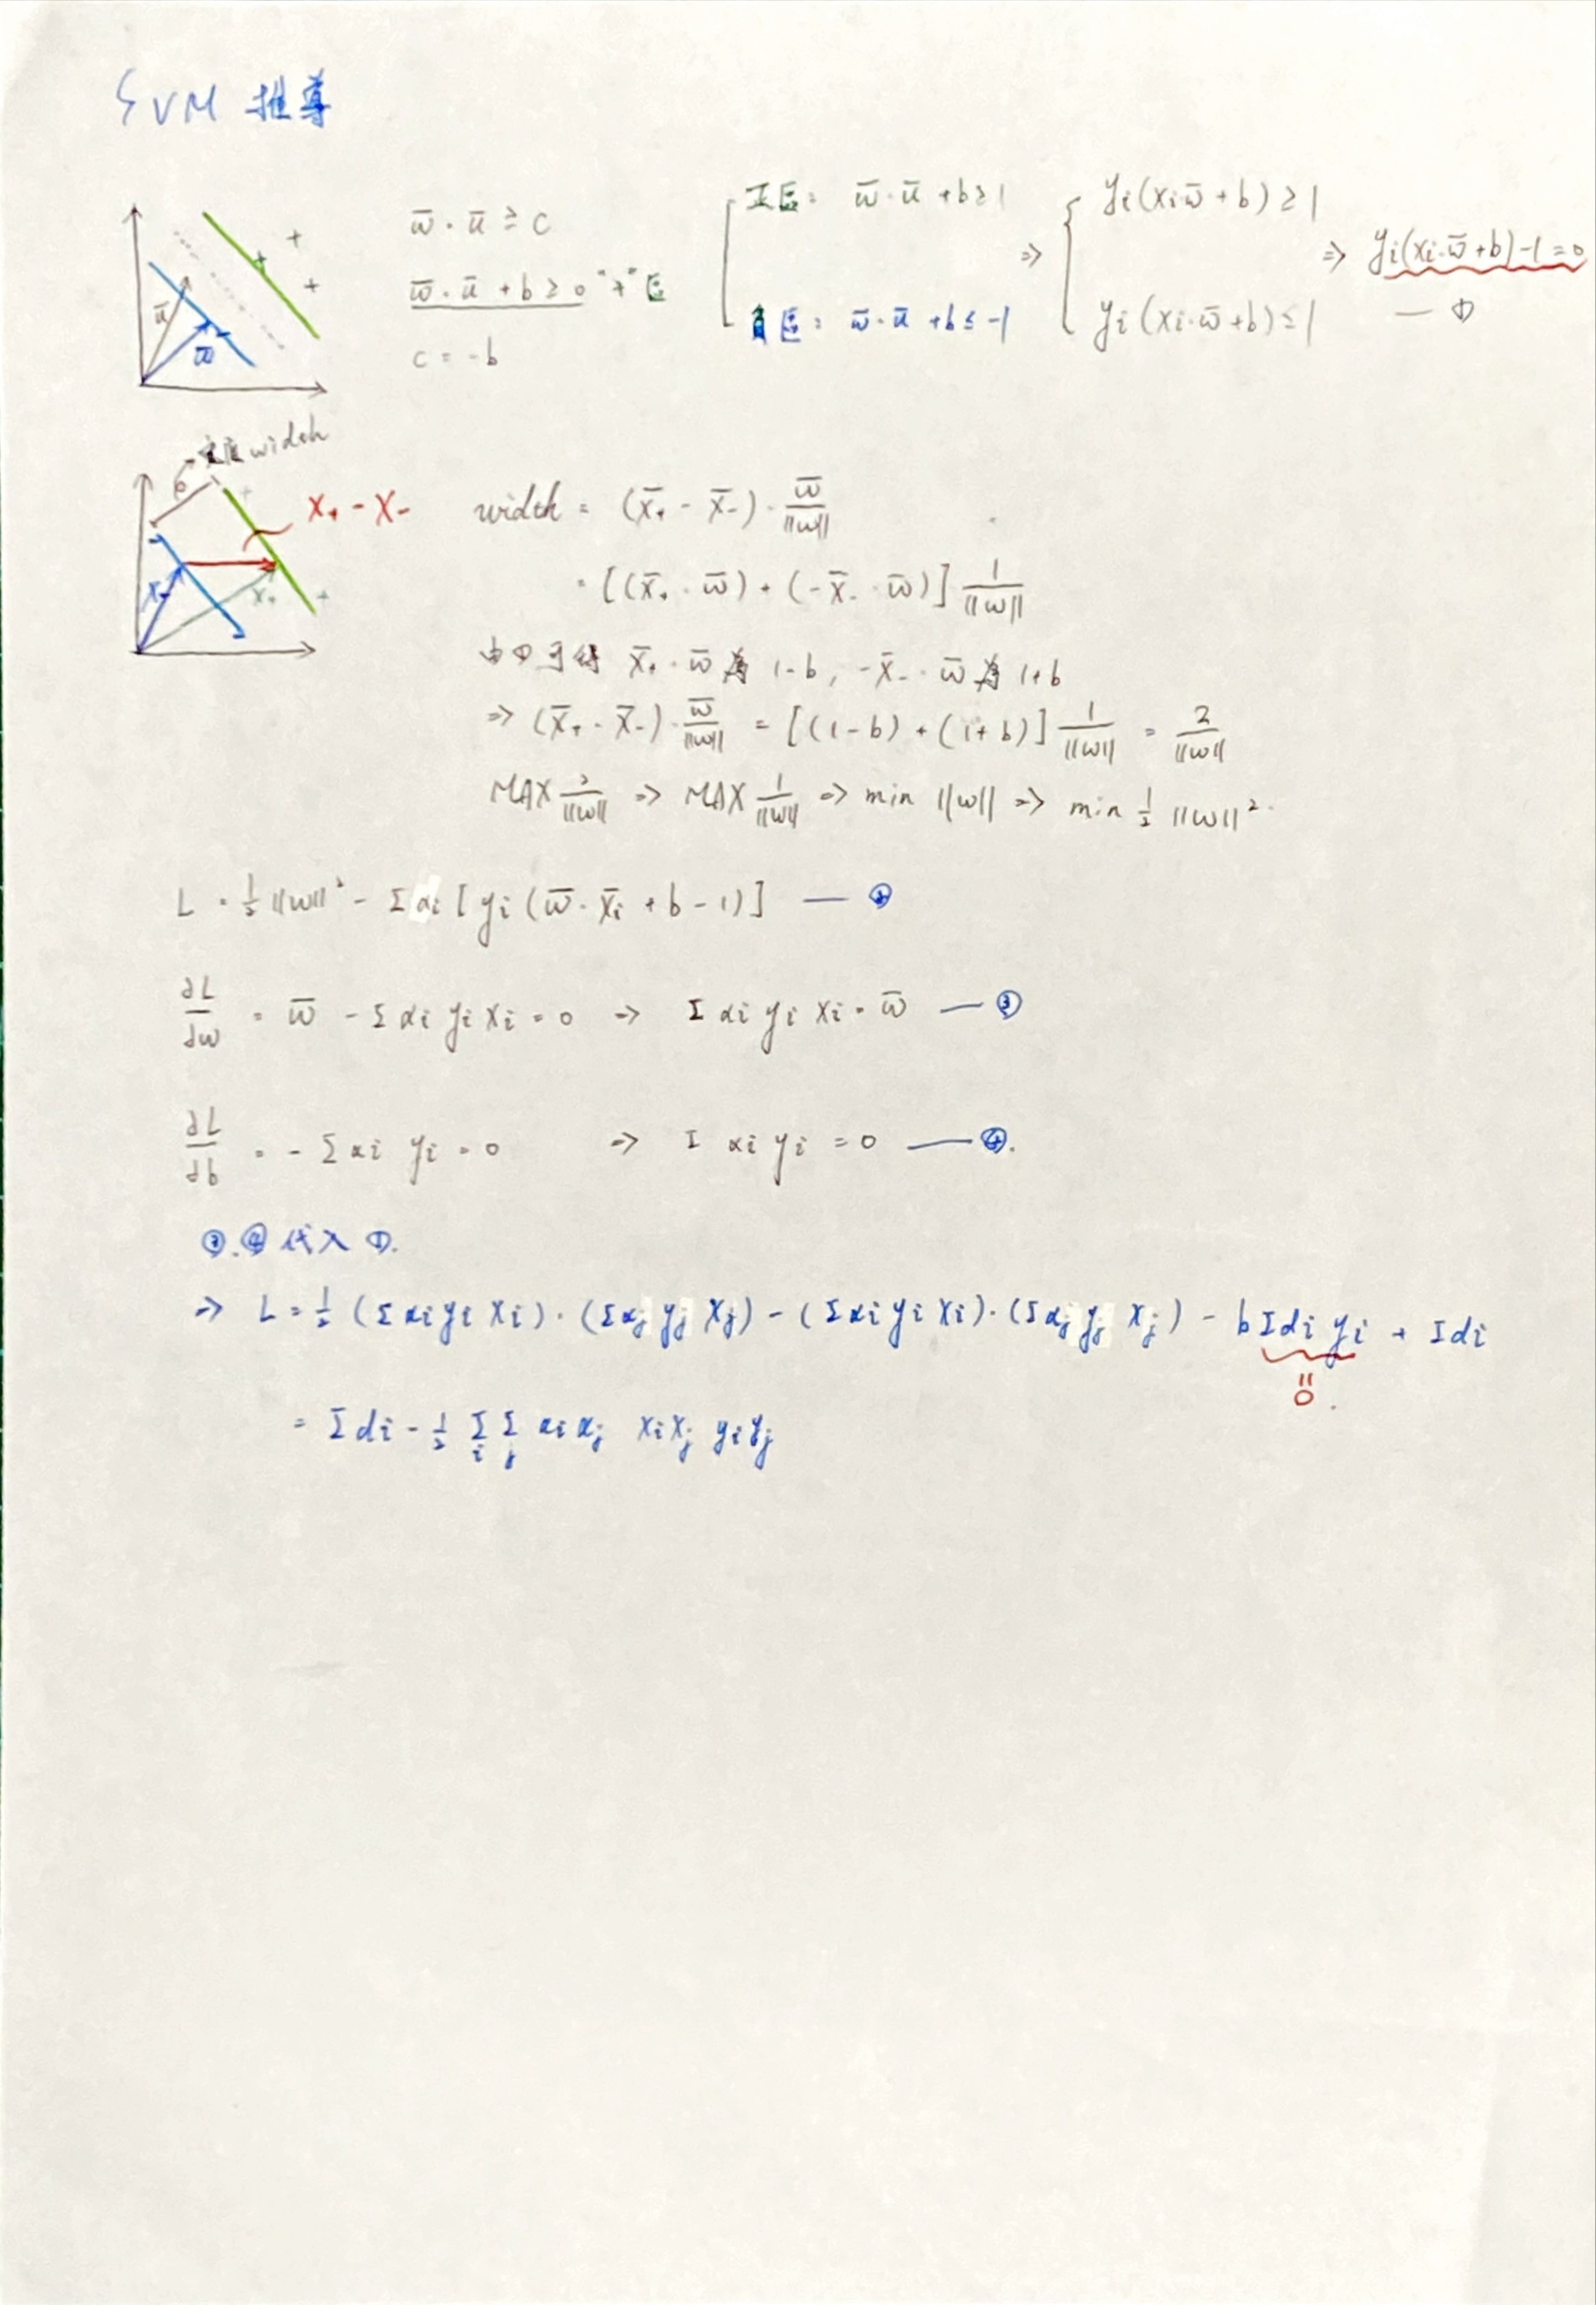 SVM 推導
w̄ · ū ≥ c
w̄ · ū + b ≥ 0 "+" 區
c = -b
正區: w̄ · ū + b ≥ 1
負區: w̄ · ū + b ≤ -1
⇒ { yi(xi·w̄ + b) ≥ 1
yi(xi·w̄ + b) ≤ 1
⇒ yi(xi·w̄ + b) - 1 = 0 — ①
ū
w̄
width
X+ - X-
X-
X+
width = (X̄+ - X̄-) · w̄/||w||
= [(X̄+ · w̄) + (-X̄- · w̄)] 1/||w||
由①可得 X̄+ · w̄ 為 1-b, -X̄- · w̄ 為 1+b
⇒ (X̄+ - X̄-) · w̄/||w|| = [(1-b) + (1+b)] 1/||w|| = 2/||w||
MAX 2/||w|| ⇒ MAX 1/||w|| ⇒ min ||w|| ⇒ min 1/2 ||w||²
L = 1/2 ||w||² - Σ αi [yi (w̄ · X̄i + b - 1)] — ②
∂L/∂w = w̄ - Σ αi yi Xi = 0 ⇒ Σ αi yi Xi = w̄ — ③
∂L/∂b = - Σ αi yi = 0 ⇒ Σ αi yi = 0 — ④.
③.④代入①.
⇒ L = 1/2 (Σ αi yi Xi) · (Σ αj yj Xj) - (Σ αi yi Xi) · (Σ αj yj Xj) - b Σ αi yi + Σ αi
= 0.
= Σ αi - 1/2 Σi Σj αi αj xi xj yi yj